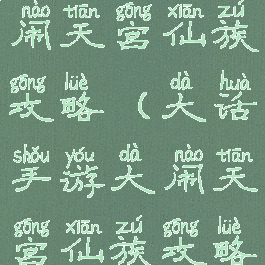 nào tiān gōng xiān zú
闹天宫仙族
gōng lüè dà huà
攻略(大话
shǒu yóu dà nào tiān
手游大闹天
gōng xiān zú gōng lüè
宫仙族攻略